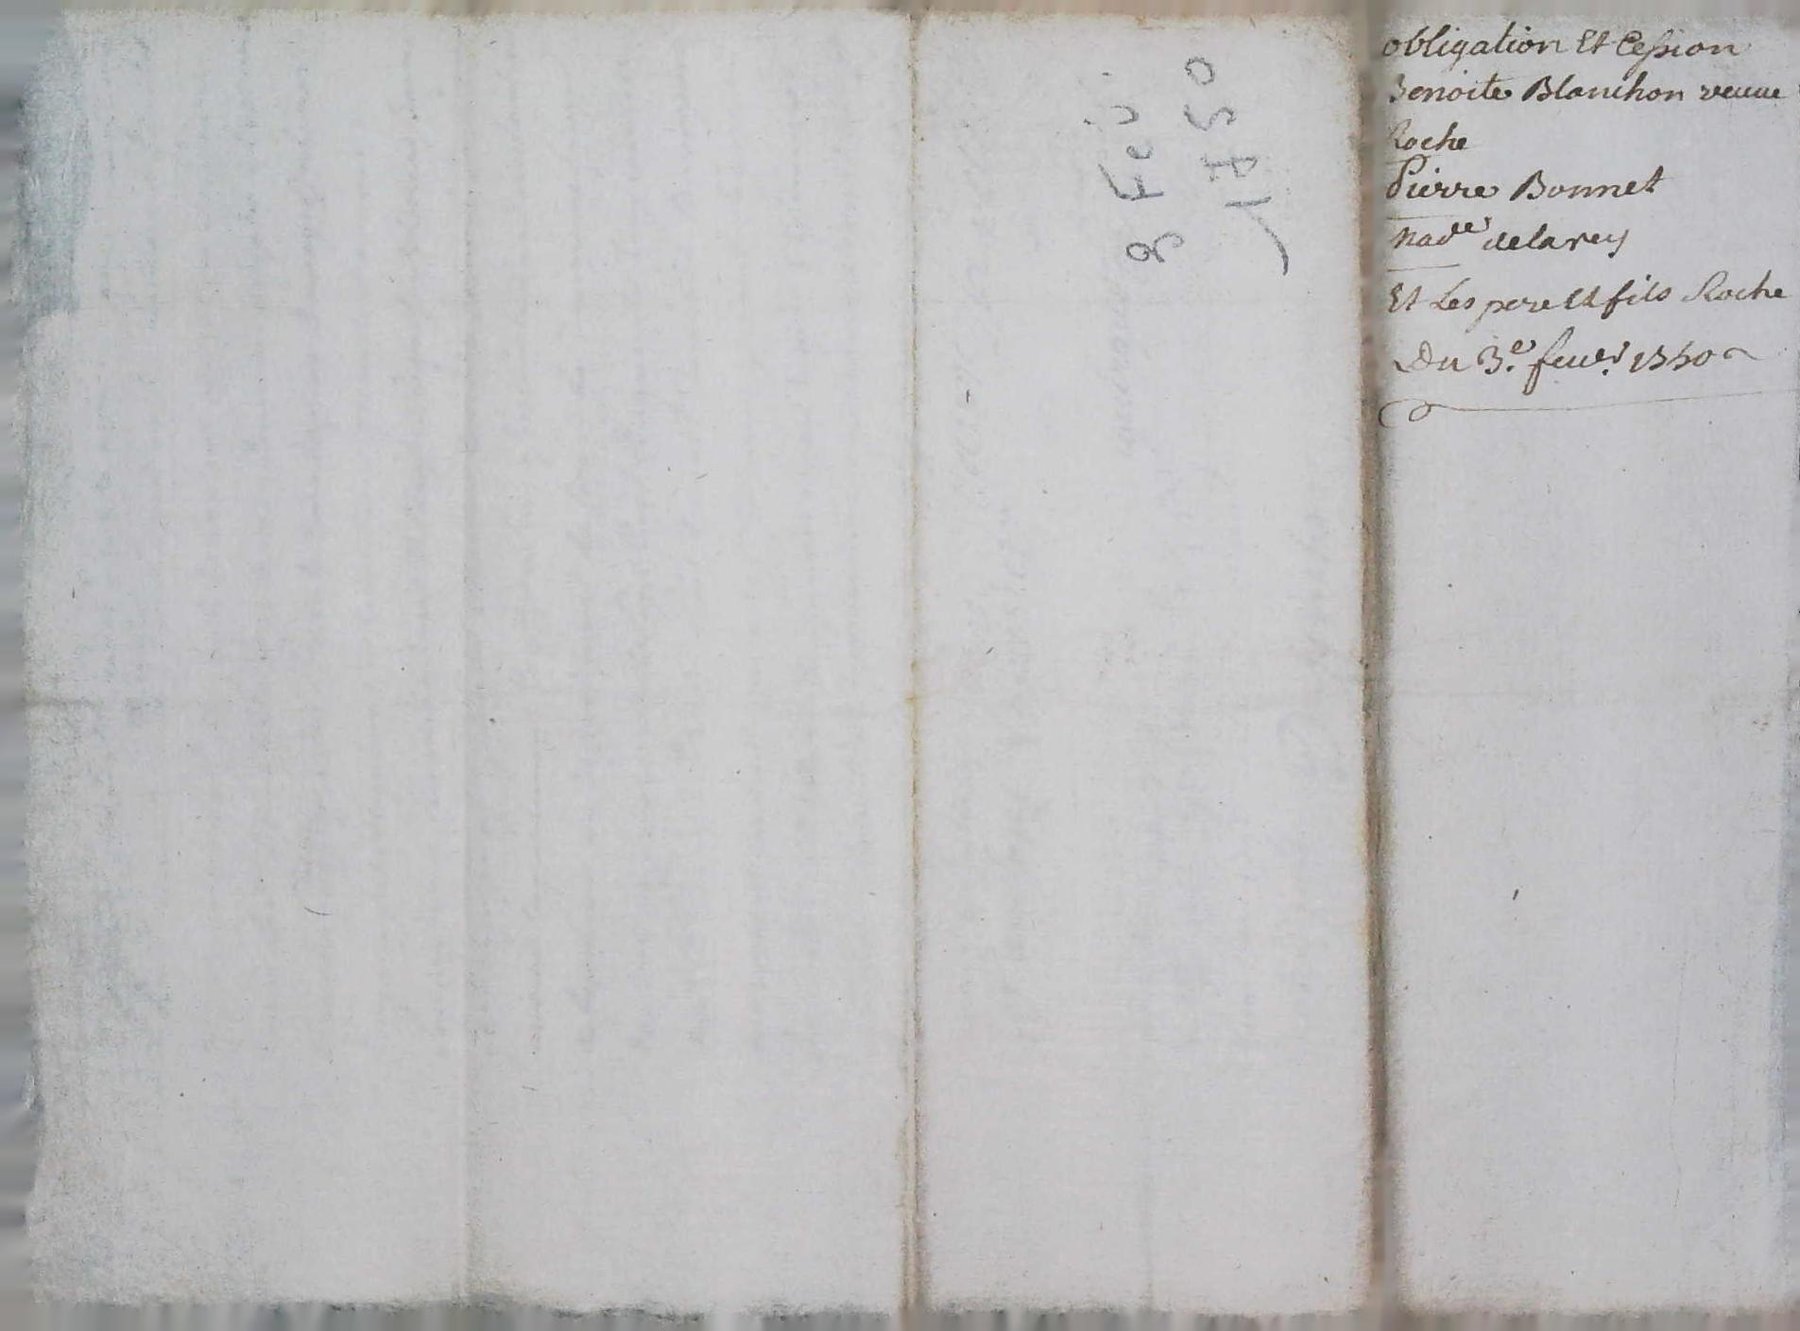 obligation Et Cession
Benoite Blanchon veuue
Roche
Pierre Bonnet
Made delarey
Et Les pere Et fils Roche
Du 3e. feuer. 1750
3 Fev.
1750